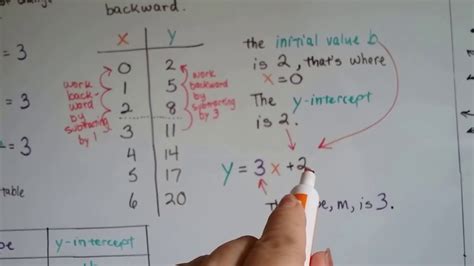 backward.
= 3
= 3
= 3
table
x y
0 2
1 5
2 8
3 11
4 14
5 17
6 20
work
back-
ward
by
subtracting
by 1
work
backward
by
subtracting
by 3
the initial value b
is 2, that's where
x=0
The y-intercept
is 2.
y = 3x+2
m, is 3.
y-intercept